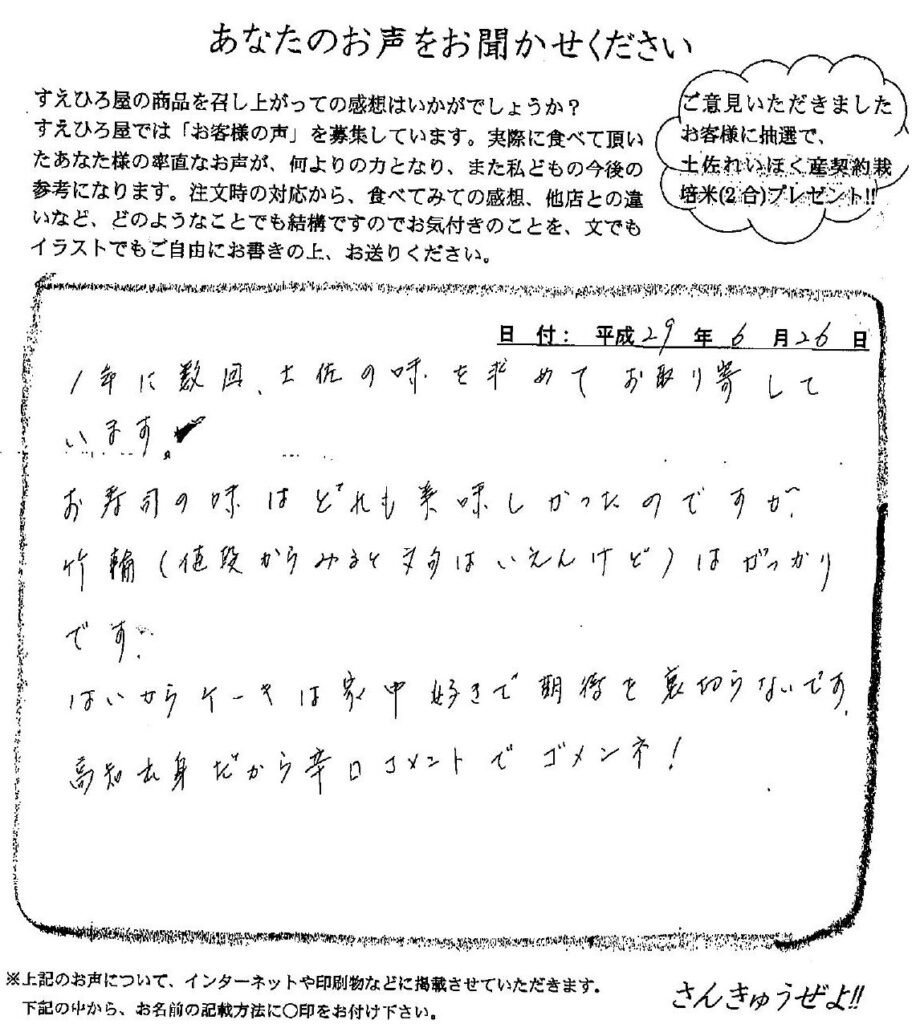 あなたのお声をお聞かせください
すえひろ屋の商品を召し上がっての感想はいかがでしょうか？
すえひろ屋では「お客様の声」を募集しています。実際に食べて頂い
たあなた様の率直なお声が、何よりの力となり、また私どもの今後の
参考になります。注文時の対応から、食べてみての感想、他店との違
いなど、どのようなことでも結構ですのでお気付きのことを、文でも
イラストでもご自由にお書きの上、お送りください。
ご意見いただきました
お客様に抽選で、
土佐れいほく産契約栽
培米(2合)プレゼント!!
日 付： 平成29年 6月26日
1年に数回、土佐の味を求めてお取り寄して
います。
お寿司の味はどれも美味しかったのですが、
竹輪(値段からみると文句はいえんけど)はがっかり
です。
はいからケーキは家中好きで期待を裏切らないです。
高知出身だから辛口コメントでゴメンネ!
※上記のお声について、インターネットや印刷物などに掲載させていただきます。
下記の中から、お名前の記載方法に〇印をお付け下さい。
さんきゅうぜよ!!